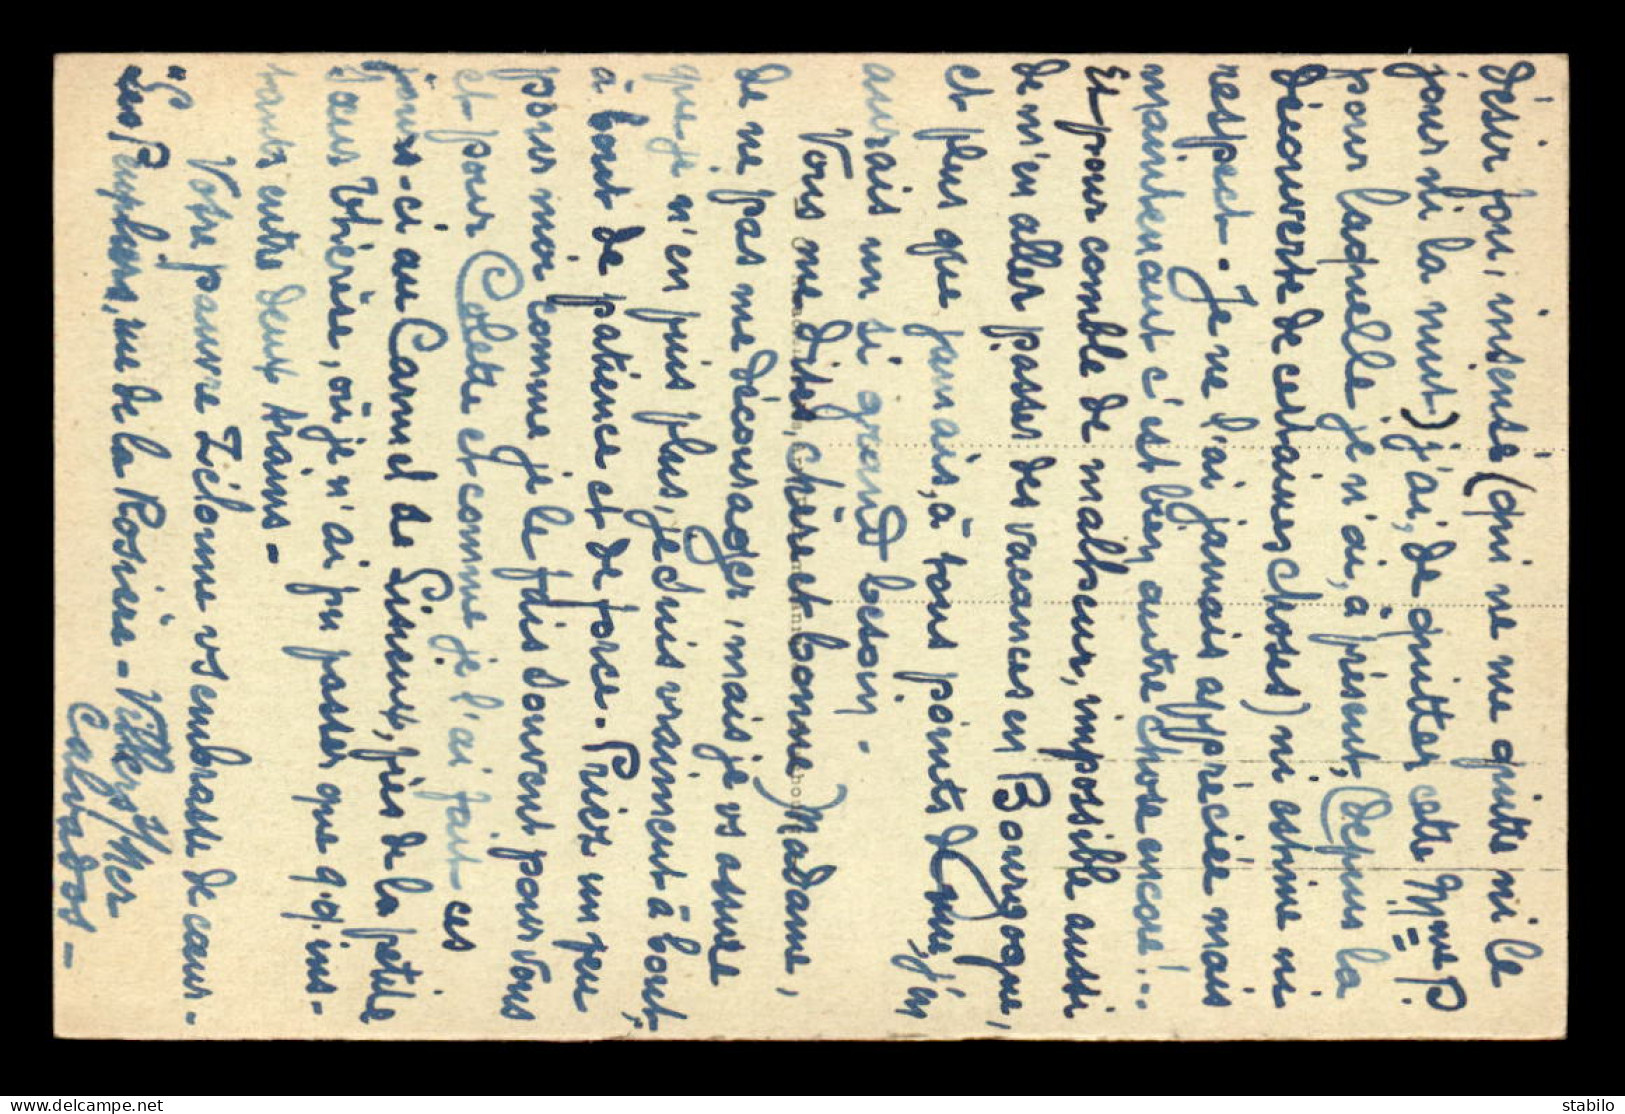 désir fou, insensé (qui ne me quitte ni le
jour ni la nuit) j'ai, de quitter cette Mme P.
pour laquelle je n'ai, à présent, (depuis la
découverte de certaines choses) ni estime ni
respect. Je ne l'ai jamais appréciée mais
maintenant c'est bien autre chose encore!..
Et pour comble de malheur, impossible aussi
de m'en aller passer des vacances en Bourgogne,
et plus que jamais, à tous points de vue, j'en
aurais un si grand besoin.
Vous me dites, chère et bonne Madame,
de ne pas me décourager, mais je vs assure
que je n'en puis plus, je suis vraiment à bout,
à bout de patience et de force. Priez un peu
pour moi comme je le fais souvent pour vous
et pour Colette et comme je l'ai fait ces
jours-ci au Carmel de Lisieux, près de la petite
Sœur Thérèse, où je n'ai pu passer que qq. ins-
tants entre deux trains -
Votre pauvre vs embrasse de cœur.
"Les Peupliers, rue de la Rosière - Villers s/Mer
Calvados -
stabilo